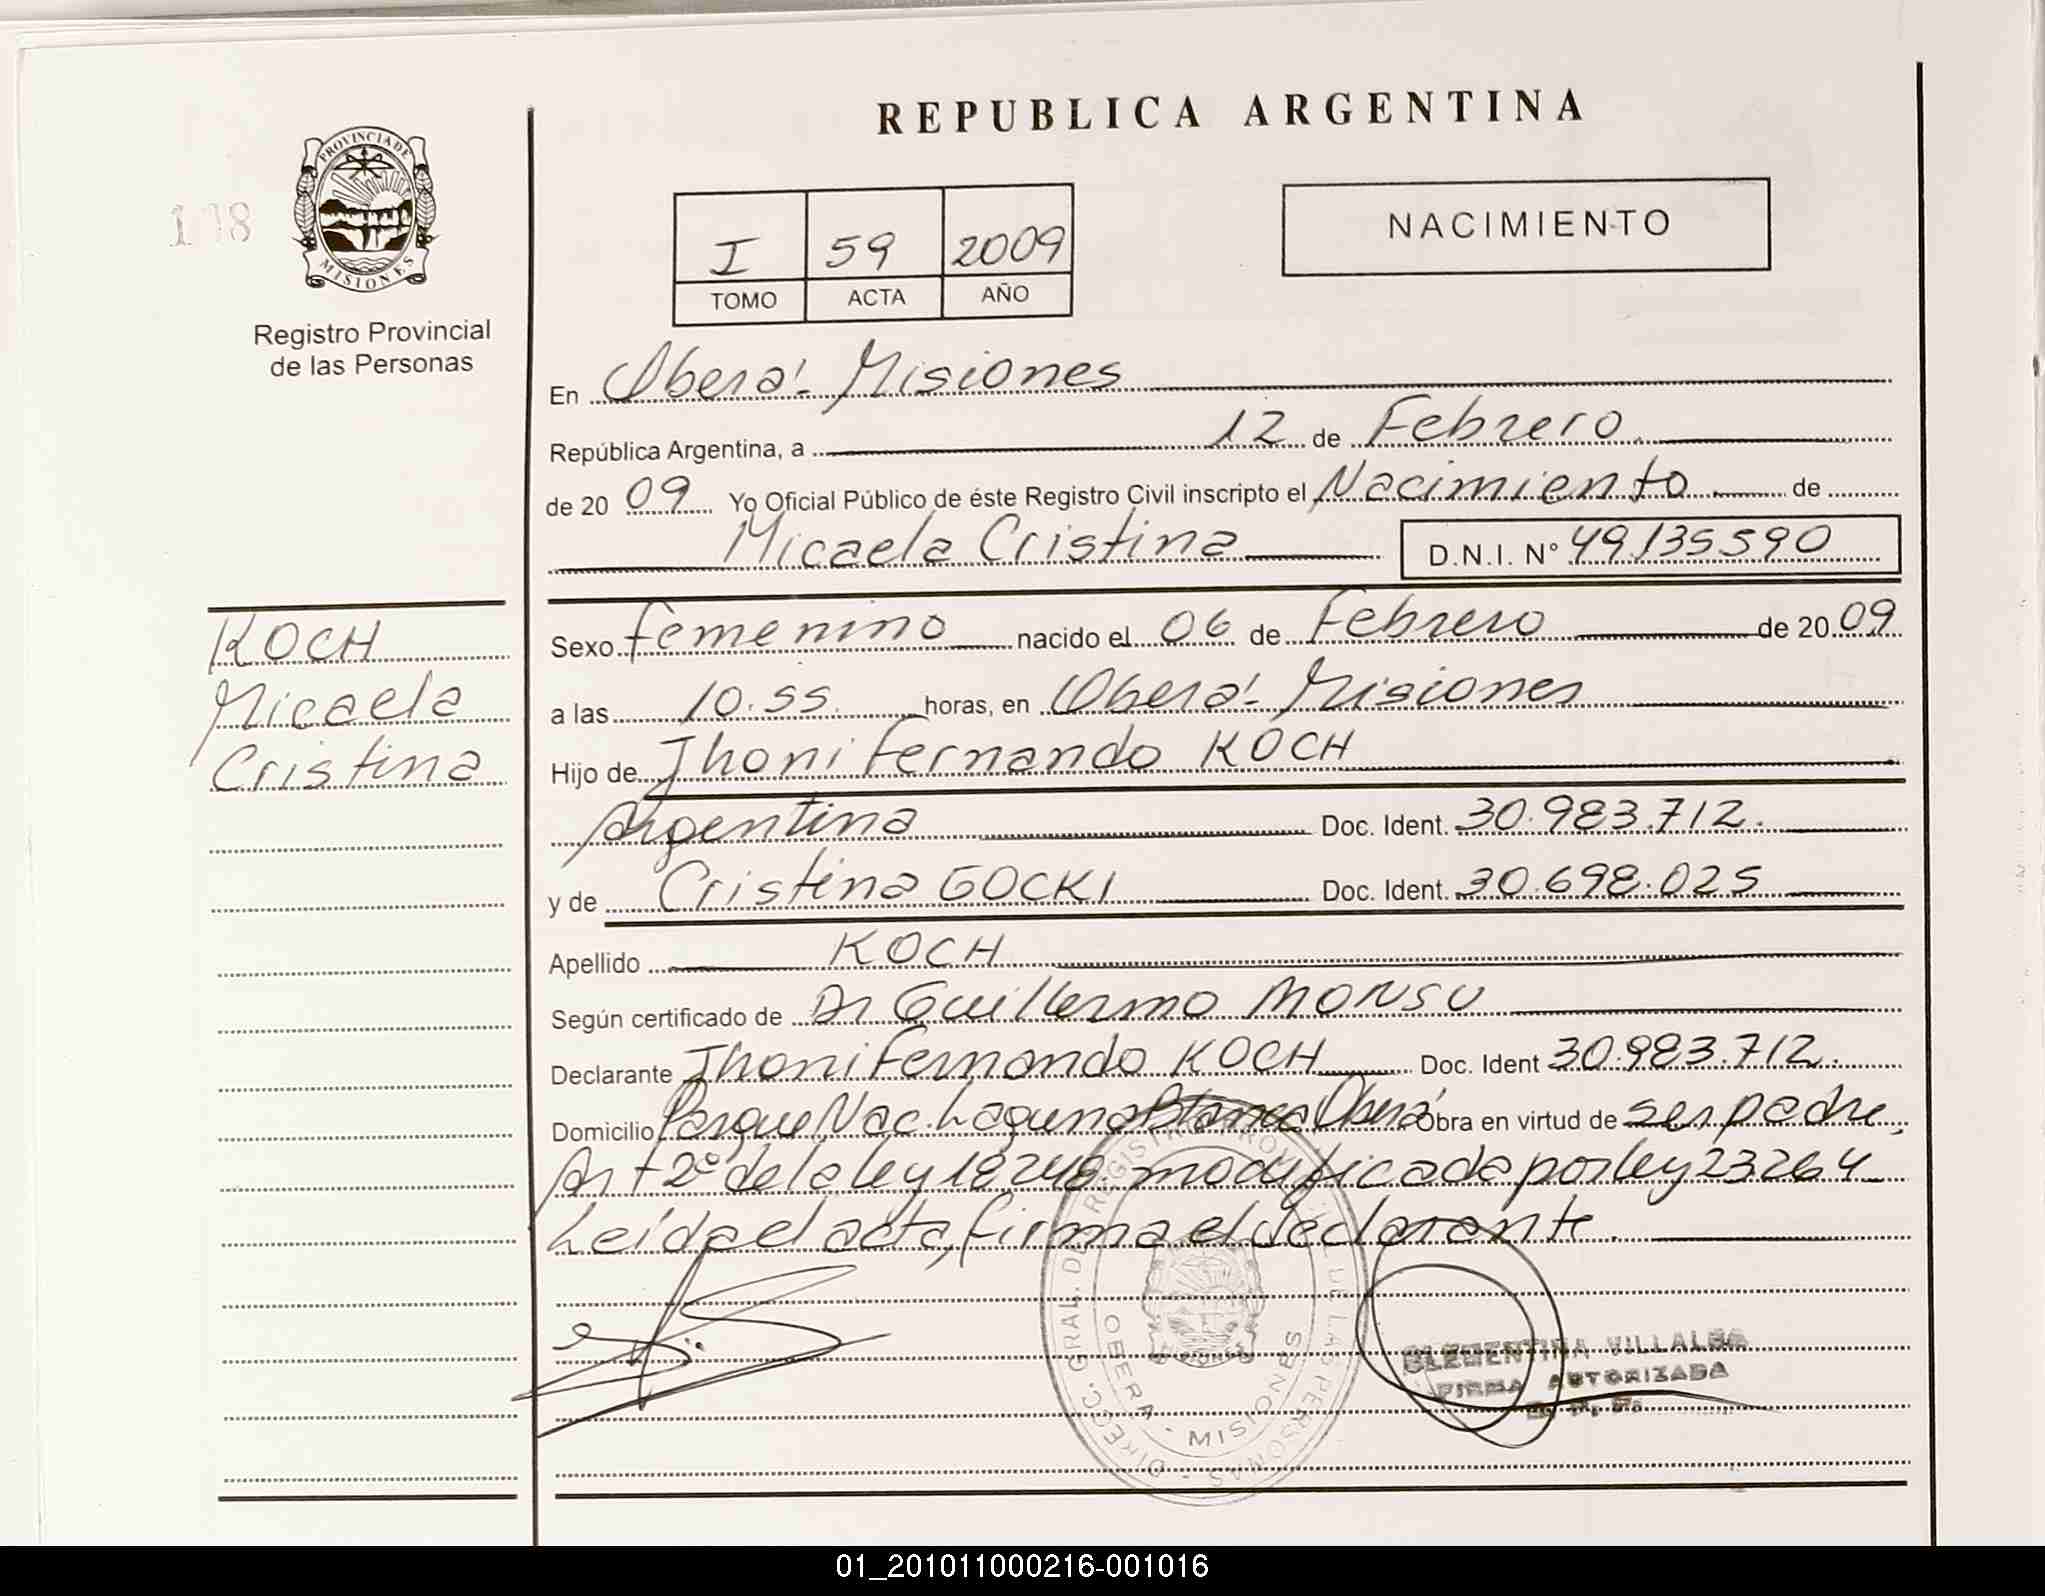 REPUBLICA ARGENTINA
PROVINCIA DE
MISIONES
Registro Provincial
de las Personas
I 59 2009
TOMO ACTA AÑO
NACIMIENTO
En Oberá - Misiones
República Argentina, a 12 de Febrero
de 20 09 Yo Oficial Público de éste Registro Civil inscripto el Nacimiento de
Micaela Cristina D.N.I. Nº 49.135590
KOCH
Micaela
Cristina
Sexo femenino nacido el 06 de Febrero de 20 09
a las 10.55 horas, en Oberá - Misiones
Hijo de Jhoni Fernando KOCH
Argentina Doc. Ident. 30.983.712.
y de Cristina GOCKI Doc. Ident. 30.698.025
Apellido KOCH
Según certificado de Dr Guillermo MONSU
Declarante Jhoni Fernando KOCH Doc. Ident 30.983.712.
Domicilio Parque Nac. Laguna Blanca Oberá Obra en virtud de ser padre,
Art 2º de la ley 18248 modificada por ley 23264
Leída el acta, firma el declarante.
DIRECC. GRAL. DEL REGISTRO PROVINCIAL DE LAS PERSONAS
OBERA - MISIONES
CLEMENTINA VILLALBA
FIRMA AUTORIZADA
01_201011000216-001016